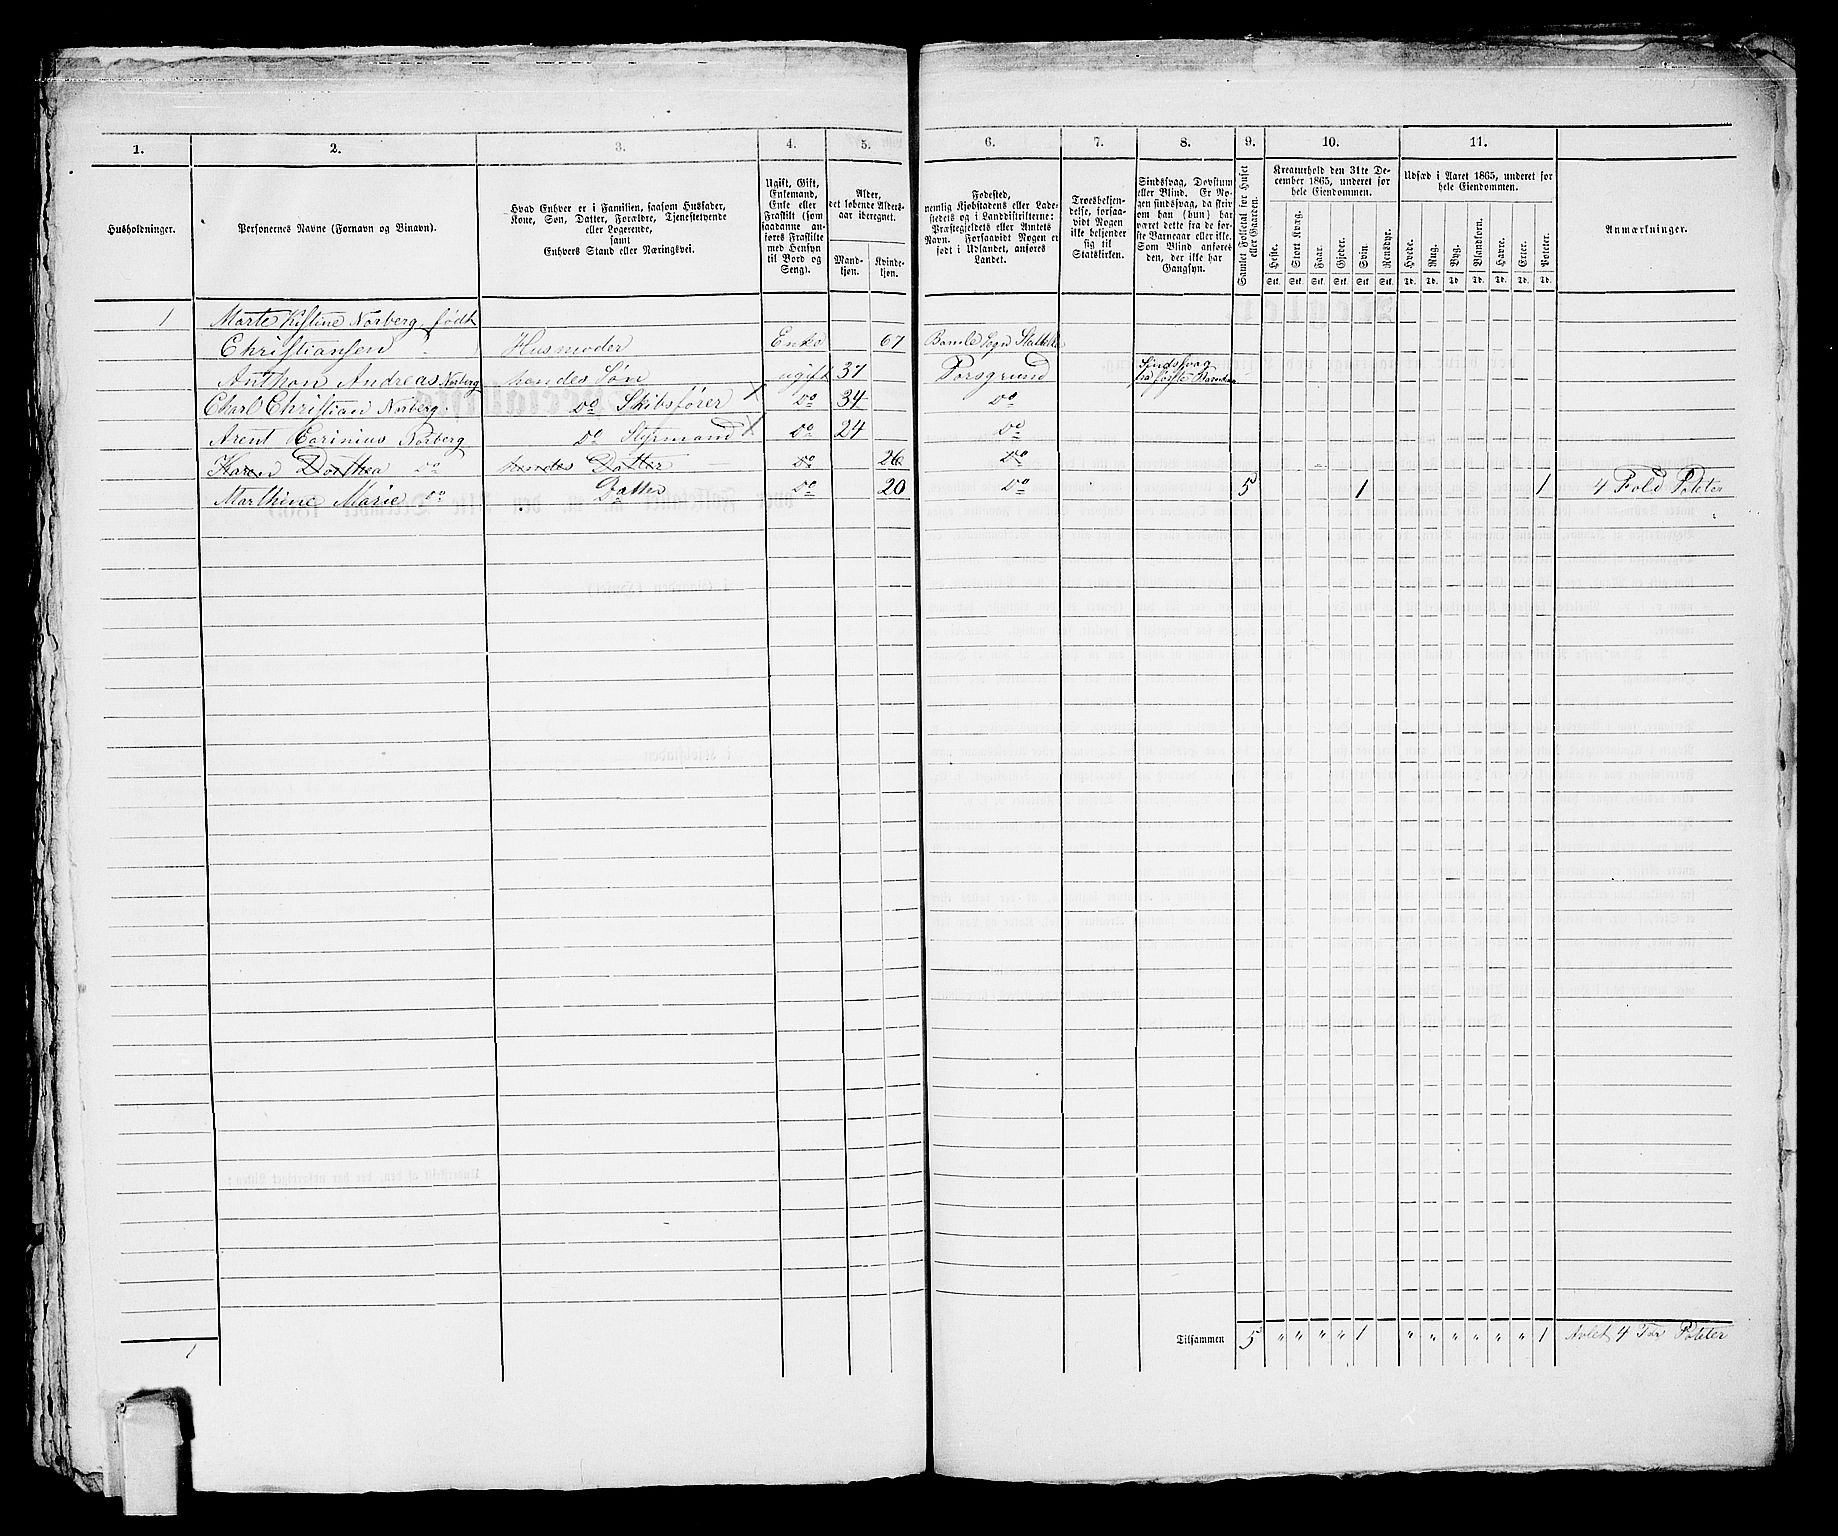 1. 2. 3. 4. 5. 6. 7. 8. 9. 10. 11.
Husholdninger.
Personernes Navne (Fornavn og Binavn).
Hvad Enhver er i Familien, saasom Husfader,
Kone, Søn, Datter, Forældre, Tjenestetyende
eller Logerende,
samt
Enhvers Stand eller Næringsvei.
Ugift, Gift,
Enkemand,
Enke eller
Fraskilt (som
saadanne an-
føres Fraskilte
med Hensyn
til Bord og
Seng).
Alder,
det løbende Alders-
aar iberegnet.
Mand-
kjøn.
Kvinde-
kjøn.
Fødested,
nemlig Kjøbstadens eller Lade-
stedets og i Landdistrikterne:
Præstegjeldets eller Amtets
Navn. Forsaavidt Nogen er
født i Udlandet, anføres
Landet.
Troesbekjen-
delse, forsaa-
vidt Nogen
ikke bekjender
sig til
Statskirken.
Sindssvag, Døvstum
eller Blind. Er No-
gen sindssvag, da skriv
om han (hun) har
været dette fra de før-
ste Barneaar eller ikke.
Som Blind anføres
den, der ikke har
Gangsyn.
Samlet Folketal for Huset
eller Gaarden.
Kreaturhold den 31te De-
cember 1865, underet for
hele Eiendommen.
Heste. Stort Kvæg. Faar. Gjeder. Svin. Rensdyr.
Stk. Stk. Stk. Stk. Stk. Stk.
Udsæd i Aaret 1865, underet for
hele Eiendommen.
Hvede. Rug. Byg. Blandkorn. Havre. Erter. Poteter.
Td. Td. Td. Td. Td. Td. Td.
Anmærkninger.
1 Marte Kistine Norberg, født
Christiansen Husmoder Enke 67 Bamle Sogn
Anthon Andreas Norberg hendes Søn ugift 37 Porsgrund Sindssvag
Charl Christian Norberg Do Skibsfører X Do 34 Do
Arent Corinius Norberg Do Styrmand X Do 24 Do
Karen Dorthea Do hendes Datter Do 26 Do
Marthine Marie Do Datter Do 20 Do 5 1 1 4 Fold Poteter
Tilsammen 5 " " " " 1 " " " " " " 1 Avlet 4 Tør Poteter
1